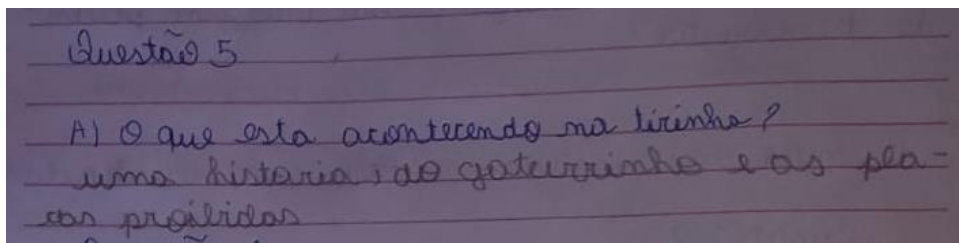 Questão 5
A) O que esta acontecendo na tirinha?
uma historia, do gaturrinho e as pla-
cas proibidas